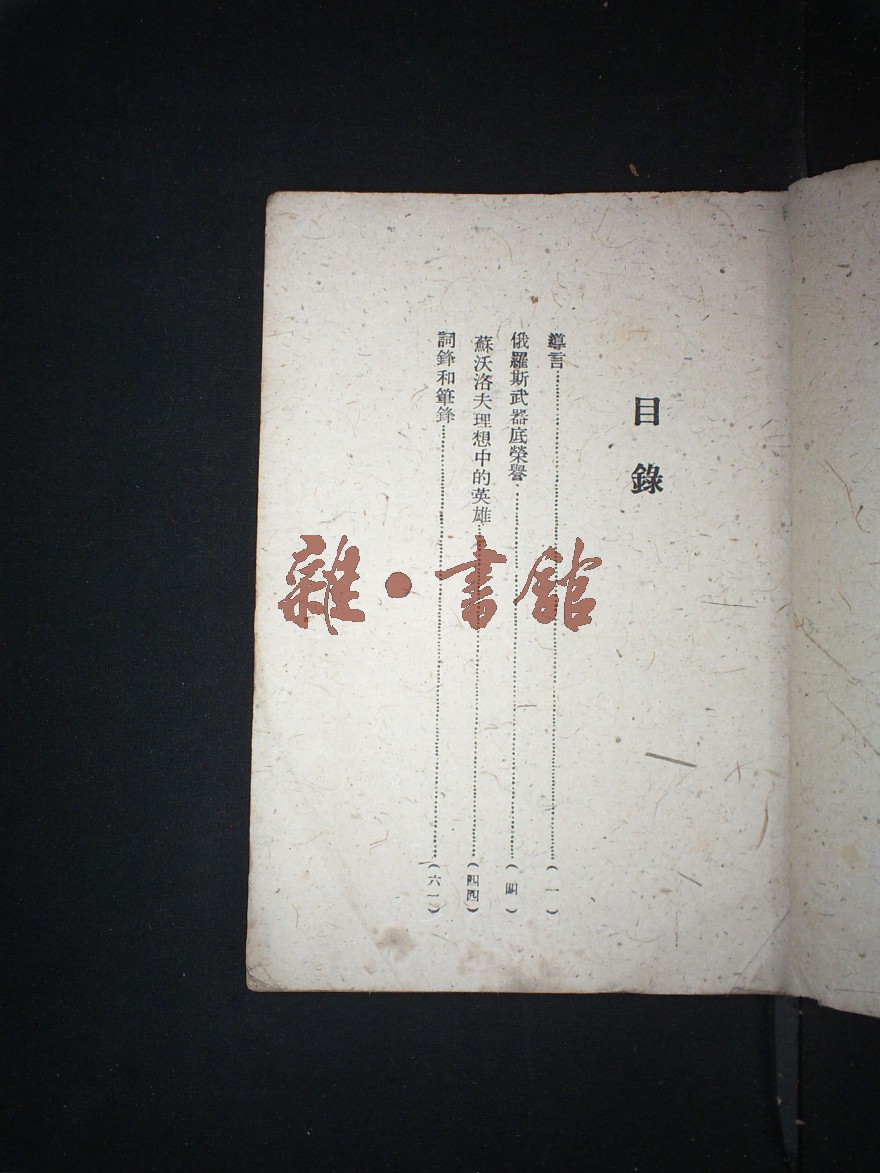 目錄
導言……(一)
俄羅斯武器底榮譽……(四)
蘇沃洛夫理想中的英雄……(四四)
詞鋒和筆鋒……(六一)
雜•書館